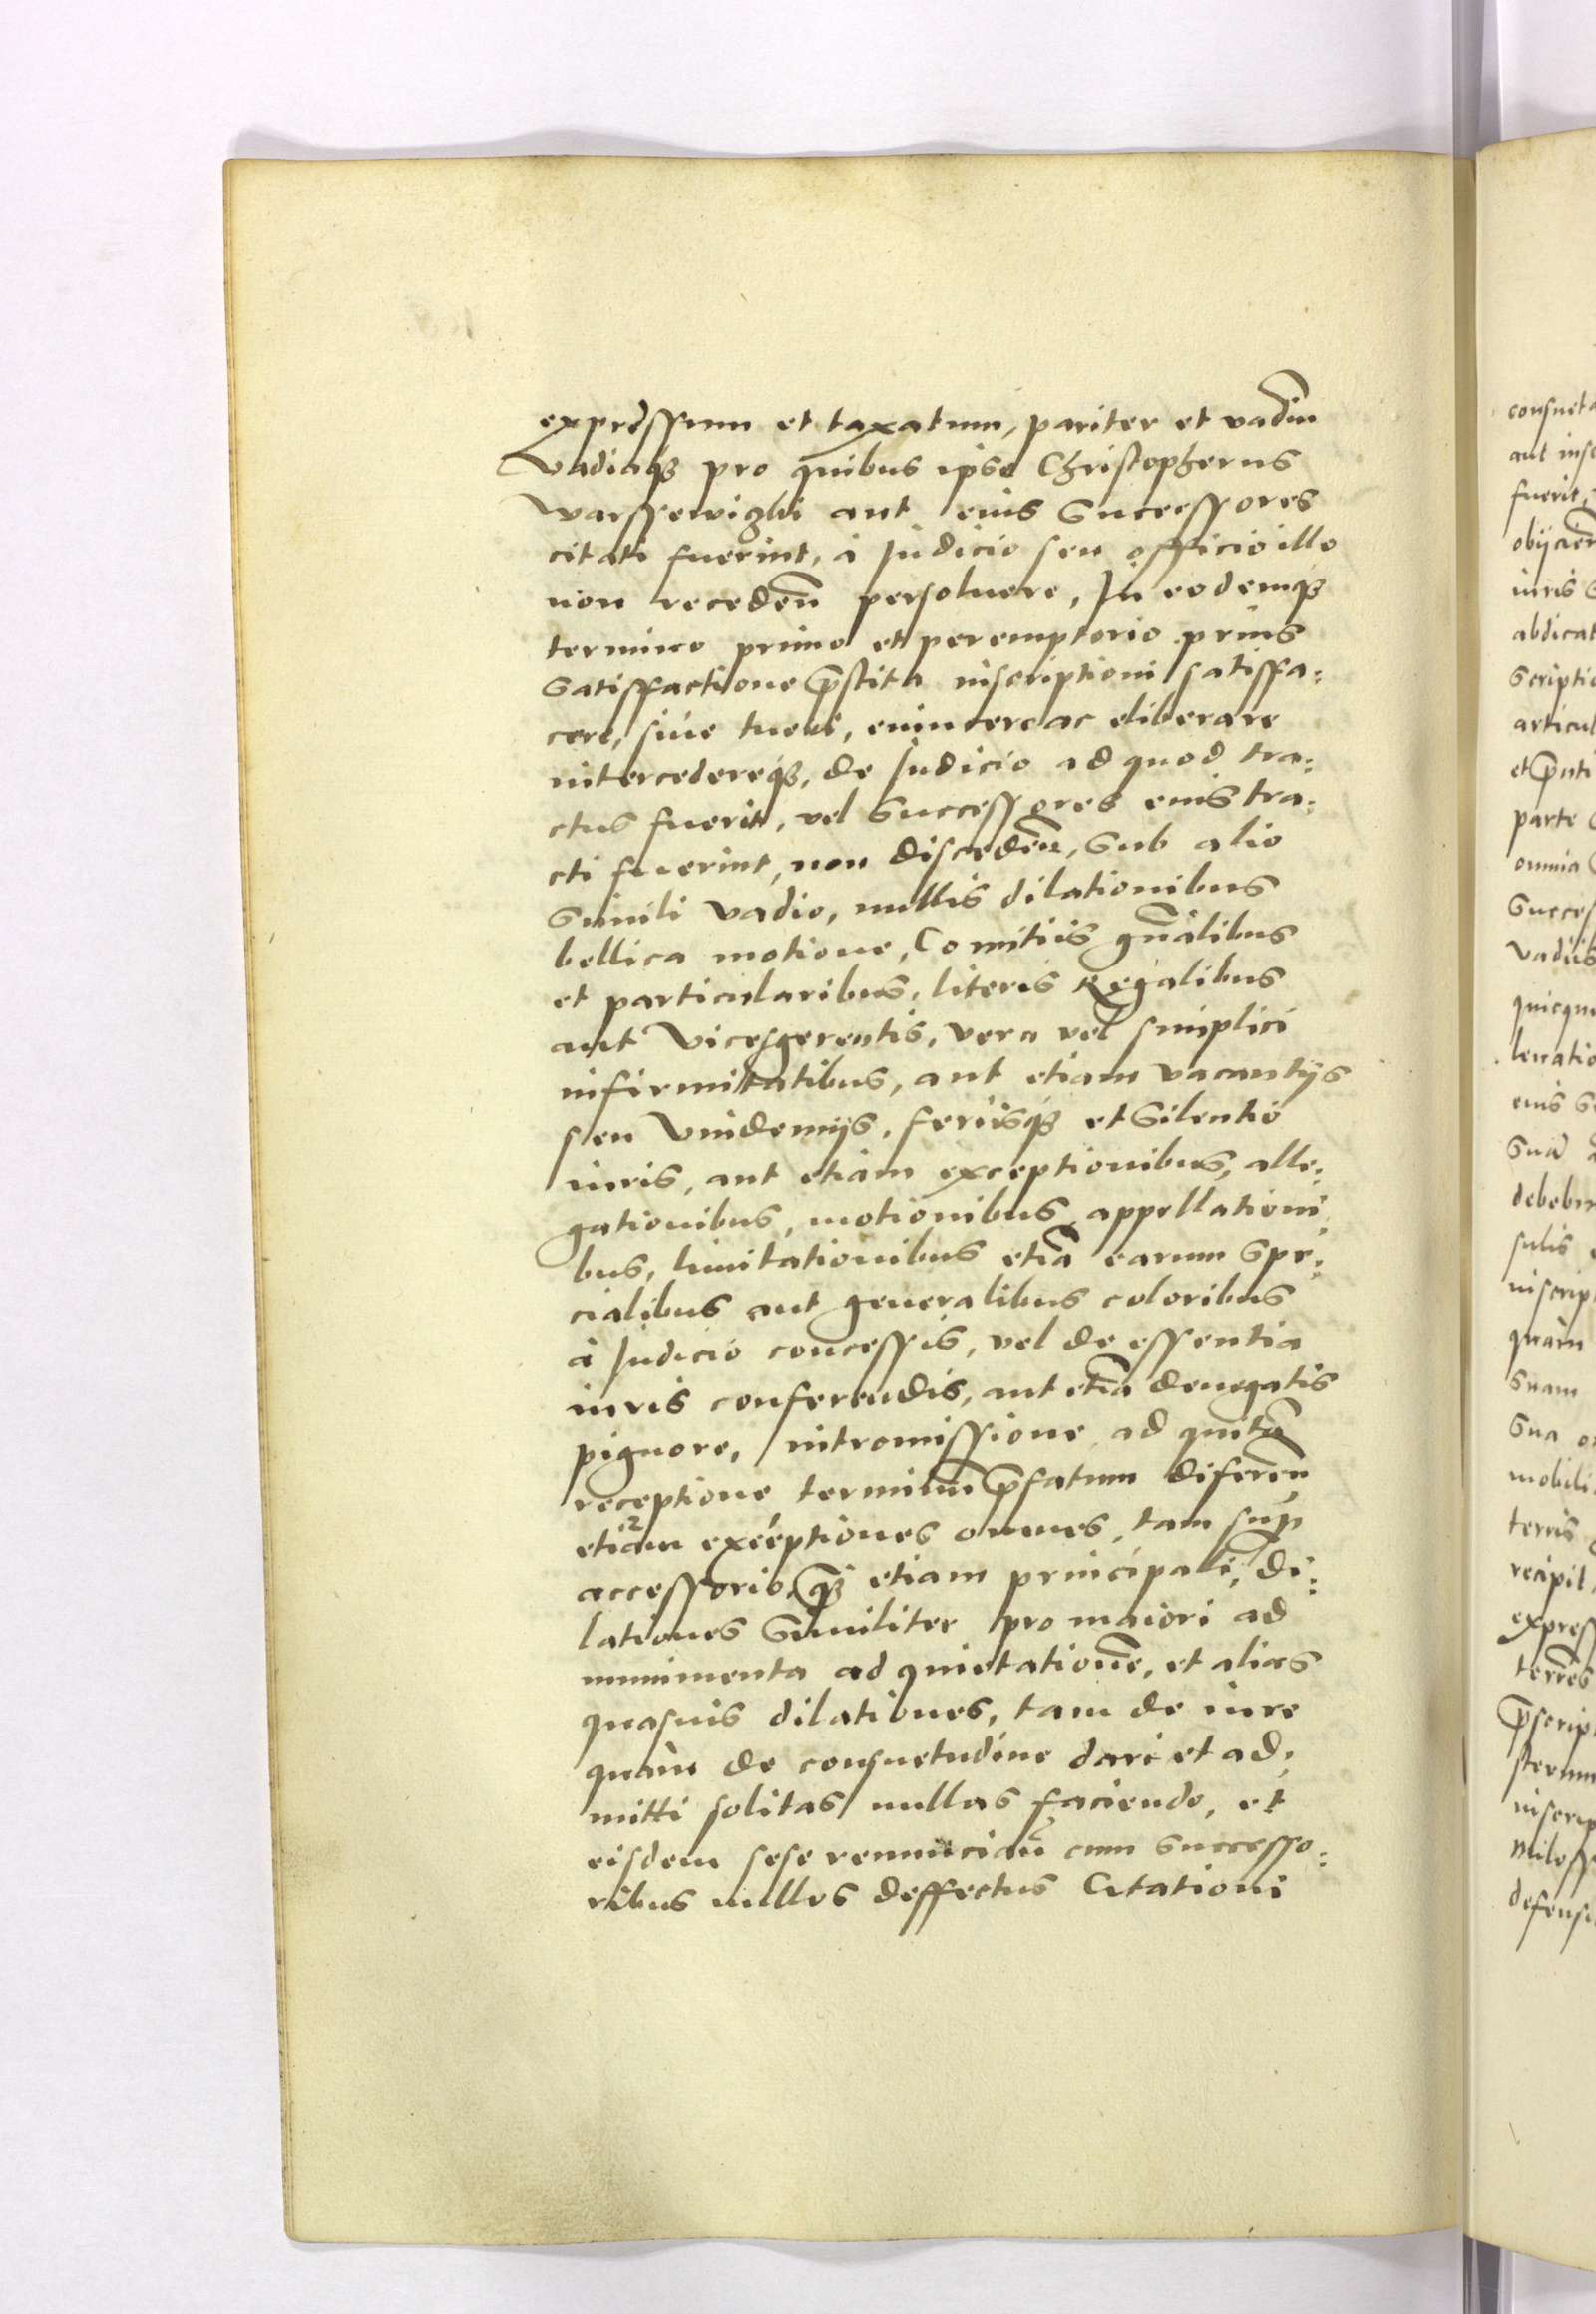 expressum et taxatum, pariter et vadiũ
Vadiaqꝫ pro quibus ipse Christopherus
Warssewiczki aut eius Successores
citati fuerint, à Judicio seu officio illo
non recedeñ persoluere, In eodemqꝫ
termino primo et peremptorio prius
Satisffactione p̃stita inscriptioni satisffa:
cere, siue tueri, euincere ac eliberare
intercedereqꝫ, de Judicio ad quod tra:
ctus fuerit, vel Successores eius tra:
cti fuerint, non discedeñ, Sub alio
Simili Vadio, nullis dilationibus
bellica motione, Comitiis gñalibus
et particularibus, literis Regalibus
aut Vicesgerentis, vera vel simplici
infirmitatibus, aut etiam vacantijs
seu Vindemijs, feriisqꝫ et Silentio
iuris, aut etiam exceptionibus, alle:
gationibus, motionibus, appellationi:
bus, limitationibus etiã earum Spe:
cialibus aut generalibus coloribus
à Judicio concessis, vel de essentia
iuris conferendis, aut etiã denegatis
pignore, intromissione, ad quitã
receptione terminũ p̃fatum difereñ
etiam exceptiones omnes, tam sup̃
accessorio, qꝫ̃ etiam principali, di:
lationes Similiter pro maiori ad
munimenta ad quietationẽ, et alias
quasuis dilationes, tam de iure
quàm de consuetudine dari et ad:
mitti solitas nullas faciendo, et
eisdem sese renunciañ cum successo:
ribus nullos deffectus Citationi
consueta
aut insc
fuerit,
obijcieñ
iuris
abdicat
Scriptio
articul
et p̃nti
parte
omnia
Succes
Vadiis
quicqu
leuatio
eius S
Suã
debebu
sulis
inscrip
quam
Suam
Sua
mobili
terris
recipit
express
terres
p̃scrip
inscrip
defens